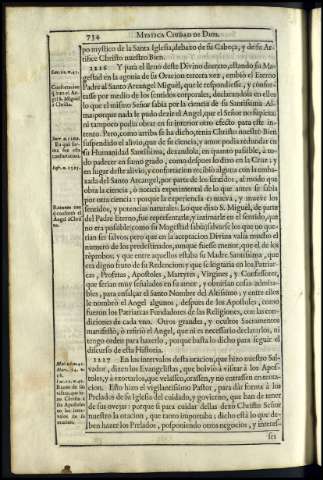 734 MYSTICA CIUDAD DE DIOS.
po mystico de la Santa Iglesia, debaxo de su Cabeça, y de su Ar-
tifice Christo nuestro Bien.
1216 Y para el lleno deste Divino decreto, estando su Ma-
gestad en la agonia de su Oracion tercera vez, embiò el Eterno
Padre al Santo Arcangel Miguel, que le respondiesse, y confor-
tasse por medio de los sentidos corporales, declarandole en ellos
lo que el mismo Señor sabia por la ciencia de su Santissima Al-
ma: porque nada le pudo dezir el Angel, que el Señor no supiera;
ni tampoco podia obrar en su interior otro efecto para este in-
tento. Pero, como arriba se ha dicho, tenia Christo nuestro Bien
suspendido el alivio, que de su ciencia, y amor podia redundar en
su Humanidad Santissima, dexandola, en quanto passible, a to-
do padecer en sumo grado, como despues lo dixo en la Cruz: y
en lugar deste alivio, y confortacion recibiò alguna con la emba-
xada del Santo Arcangel, por parte de los sentidos, al modo que
obra la ciencia, ò noticia experimental de lo que antes se sabia
por otra ciencia: porque la experiencia es nueva, y mueve los
sentidos, y potencias naturales. Lo que dixo S. Miguel, de parte
del Padre Eterno, fue representarle, y intimarle en el sentido, que
no era possible, como su Magestad sabia, salvarse los que no que-
rian ser salvos; pero que en la aceptacion Divina valia mucho el
numero de los predestinados, aunque fuesse menor, que el de los
reprobos; y que entre aquellos estaba su Madre Santissima, que
era digno fruto de su Redencion; y que se lograria en los Patriar-
cas, Profetas, Apostoles, Martyres, Virgines, y Confessores,
que serian muy señalados en su amor, y obrarian cosas admira-
bles, para ensalçar el Santo Nombre del Altissimo; y entre ellos
le nombrò el Angel algunos, despues de los Apostoles, como
fueron los Patriarcas Fundadores de las Religiones, con las con-
diciones de cada vno. Otros grandes, y ocultos Sacramentos
manifestò, ò refiriò el Angel, que ni es necessario declararlos, ni
tengo orden para hazerlo, porque basta lo dicho para seguir el
discurso de esta Historia.
1217 En los intervalos desta oracion, que hizo nuestro Sal-
vador, dizen los Evangelistas, que bolviò à visitar à los Apos-
toles, y à exortarlos, que velassen, orassen, y no entrassen en tenta-
cion. Esto hizo el vigilantissimo Pastor, para dar forma à los
Prelados de su Iglesia del cuidado, y govierno, que han de tener
de sus ovejas: porque si para cuidar dellas dexò Christo Señor
nuestro la oracion, que tanto importaba; dicho està lo que de-
ben hazer los Prelados, posponiendo otros negocios, y interes-
ses